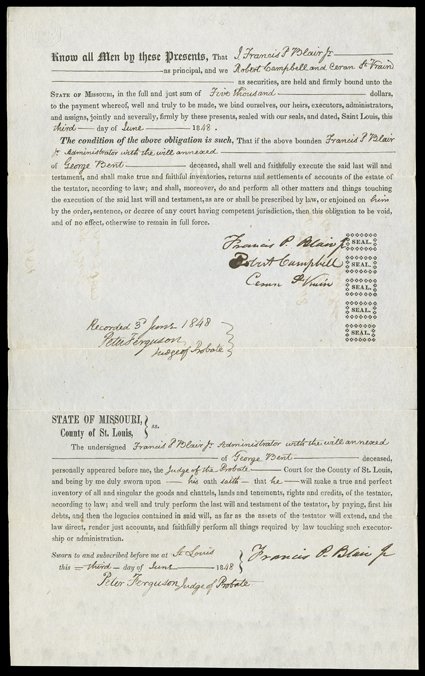 Know all Men by these Presents, That I Francis P Blair Jr
as principal, and we Robert Campbell and Ceran St Vrain
as securities, are held and firmly bound unto the
STATE OF MISSOURI, in the full and just sum of Five thousand dollars,
to the payment whereof, well and truly to be made, we bind ourselves, our heirs, executors, administrators
and assigns, jointly and severally, firmly by these presents, sealed with our seals, and dated, Saint Louis, this
third day of June 1848.
The condition of the above obligation is such, That if the above bounden Francis P Blair
Jr Administrator with the will annexed
of George Bent deceased, shall well and faithfully execute the said last will and
testament, and shall make true and faithful inventories, returns and settlements of accounts of the estate of
the testator, according to law; and shall, moreover, do and perform all other matters and things touching
the execution of the said last will and testament, as are or shall be prescribed by law, or enjoined on him
by the order, sentence, or decree of any court having competent jurisdiction, then this obligation to be void,
and of no effect, otherwise to remain in full force.
Francis P. Blair Jr SEAL.
Robert Campbell SEAL.
Ceran St Vrain SEAL.
SEAL.
SEAL.
Recorded 3d June 1848
Peter Ferguson
Judge of Probate
STATE OF MISSOURI, } ss.
County of St. Louis,
The undersigned Francis P Blair Jr Administrator with the will annexed
of George Bent deceased,
personally appeared before me, the Judge of the Probate Court for the County of St. Louis,
and being by me duly sworn upon his oath saith that he will make a true and perfect
inventory of all and singular the goods and chattels, lands and tenements, rights and credits, of the testator,
according to law; and well and truly perform the last will and testament of the testator, by paying, first his
debts, and then the legacies contained in said will, as far as the assets of the testator will extend, and the
law direct, render just accounts, and faithfully perform all things required by law touching such executor-
ship or administration.
Sworn to and subscribed before me at St Louis
this third day of June 1848 } Francis P. Blair Jr
Peter Ferguson Judge of Probate